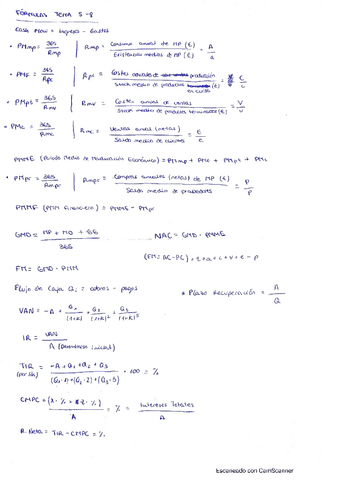 FÓRMULAS TEMA 5-8
CASH FLOW = Ingresos - Gastos
• PMmp = 365 / Rmp | Rmp = Consumo anual de MP (€) / Existencias medias de MP (€) = A / a
• PMf = 365 / Rpc | Rpc = Costes anuales de producción / Stock medio de productos en curso (€) = C / c
• PMpt = 365 / Rmv | Rmv = Costes anuales de ventas / Stock medio de productos terminados (€) = V / v
• PMc = 365 / Rmc | Rmc = Ventas anual (netas) / Saldo medio de clientes = E / e
PMME (Periodo Medio de Maduración Económico) = PMmp + PMc + PMpt + PMc
• PMpc = 365 / Rmpc | Rmpc = Compras anuales (netas) de MP (€) / Saldo medio de proveedores = P / p
PMMF (PMM Financiero) = PMME - PMpc
GMD = MP + MO + GG / 365
NAC = GMD · PMME
(FM = AC - PC) = z + a + c + v + e - p
FM = GMD · PMM
Flujo de caja Qi = cobros - pagos
* Plazo Recuperación = A / Q
VAN = -A + Q1 / (1+K) + Q2 / (1+K)² + Q3 / (1+K)³
IR = VAN / A (Desembolso inicial)
TIR = -A + Q1 + Q2 + Q3 / (Q1·1) + (Q2·2) + (Q3·3) · 100 = %
A = % = Intereses Totales / A
R. Neta = TIR - CMPC = %
Escaneado con CamScanner